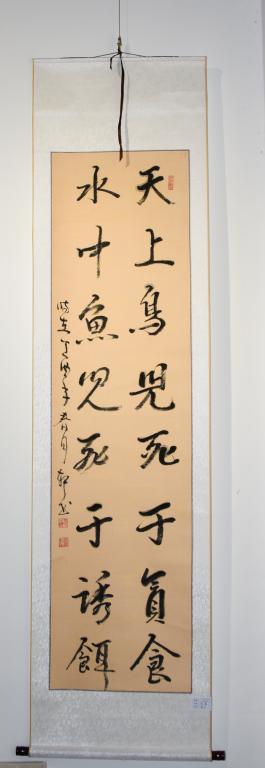 天上鳥兒死于貪食
水中魚兒死于誘餌
時在年春月書